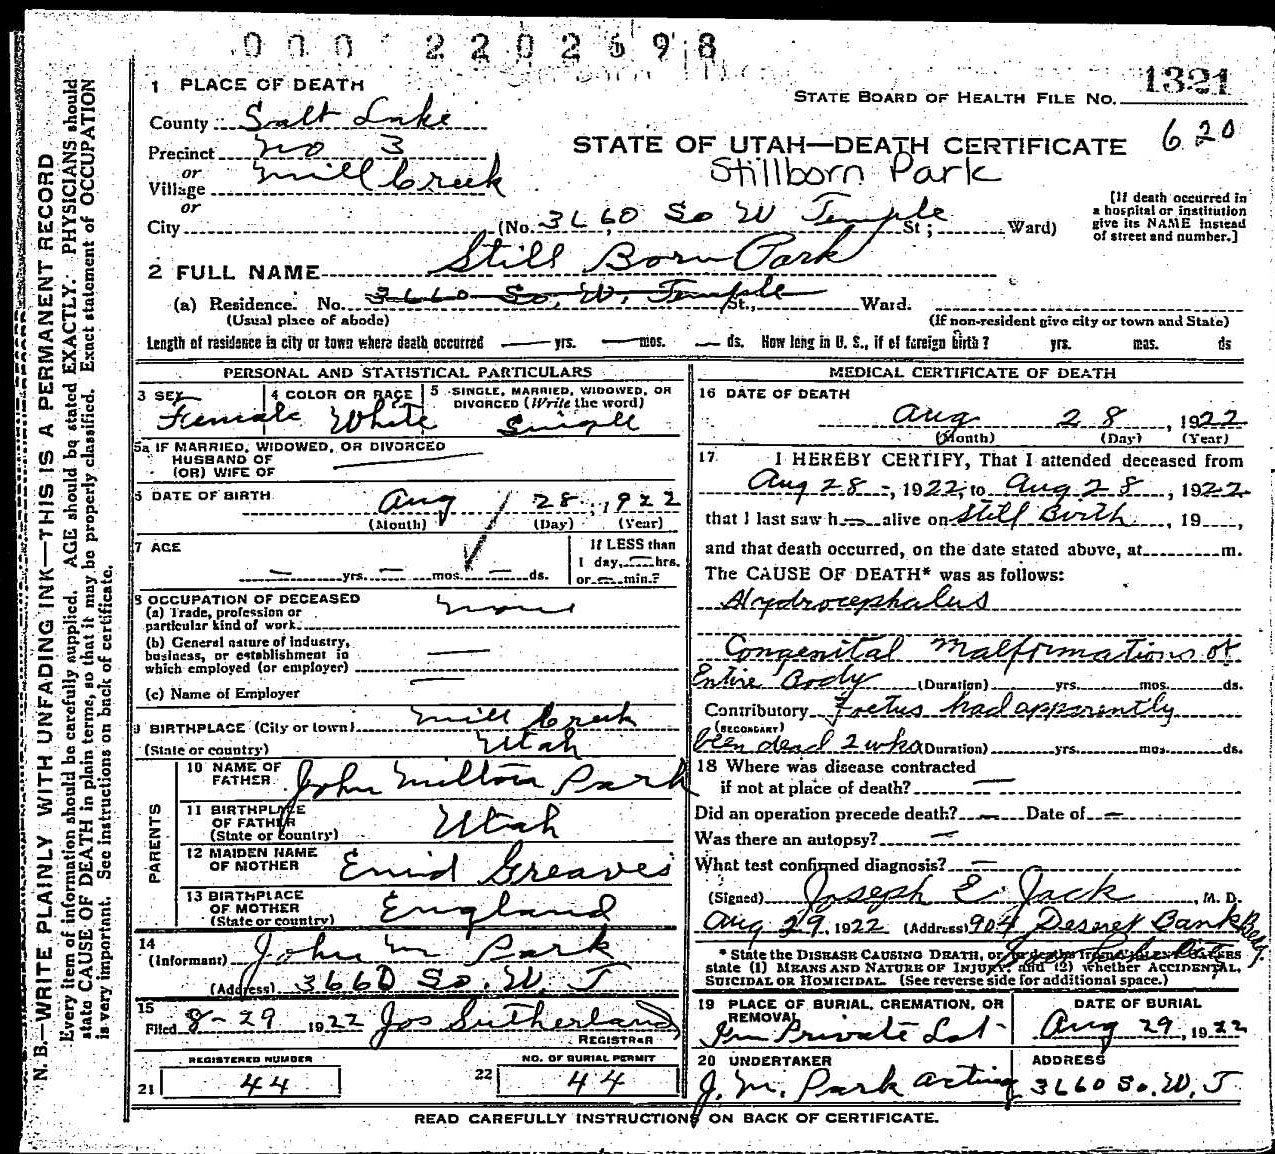 0002202698
1 PLACE OF DEATH
STATE BOARD OF HEALTH FILE NO. 1321
County Salt Lake
620
Precinct No 3
STATE OF UTAH—DEATH CERTIFICATE
or
Stillborn Park
Village Mill Creek
or
City (No. 3660 So W Temple St; Ward)
[If death occurred in a hospital or institution give its NAME instead of street and number.]
2 FULL NAME Still Born Park
(a) Residence. No. 3660 So. W. Temple St., Ward.
(Usual place of abode) (If non-resident give city or town and State)
Length of residence in city or town where death occurred — yrs. — mos. — ds. How long in U. S., if of foreign birth? yrs. mas. ds
PERSONAL AND STATISTICAL PARTICULARS
3 SEX Female
4 COLOR OR RACE White
5 SINGLE, MARRIED, WIDOWED, OR DIVORCED (Write the word) Single
5a IF MARRIED, WIDOWED, OR DIVORCED
HUSBAND OF
(OR) WIFE OF —
6 DATE OF BIRTH Aug 28, 1922
(Month) (Day) (Year)
7 AGE
— yrs. — mos. — ds.
If LESS than
1 day, — hrs.
or — min.?
8 OCCUPATION OF DECEASED
(a) Trade, profession or
particular kind of work None
(b) General nature of industry,
business, or establishment in
which employed (or employer) —
(c) Name of Employer —
9 BIRTHPLACE (City or town) Mill Creek
(State or country) Utah
PARENTS
10 NAME OF FATHER John Milton Park
11 BIRTHPLACE OF FATHER
(State or country) Utah
12 MAIDEN NAME OF MOTHER Enid Greaves
13 BIRTHPLACE OF MOTHER
(State or country) England
14
(Informant) John M Park
(Address) 3660 So. W. T
15
Filed 8-29 1922 Jos Sutherland
REGISTRAR
REGISTERED NUMBER
21 44
NO. OF BURIAL PERMIT
22 44
MEDICAL CERTIFICATE OF DEATH
16 DATE OF DEATH
Aug 28, 1922
(Month) (Day) (Year)
17 I HEREBY CERTIFY, That I attended deceased from
Aug 28-, 1922, to Aug 28, 1922
that I last saw h— alive on Still Birth, 19 ,
and that death occurred, on the date stated above, at m.
The CAUSE OF DEATH* was as follows:
Hydrocephalus
Congenital Malformations of
Entire Body (Duration) yrs. mos. ds.
Contributory Foetus had apparently
(SECONDARY)
been dead 2 wks (Duration) yrs. mos. ds.
18 Where was disease contracted
if not at place of death? —
Did an operation precede death? — Date of —
Was there an autopsy? —
What test confirmed diagnosis? —
(Signed) Joseph E. Jack, M. D.
Aug 29, 1922 (Address) 904 Deseret Bank Bldg.
* State the DISEASE CAUSING DEATH, or, in deaths from VIOLENT CAUSES
state (1) MEANS AND NATURE OF INJURY; and (2) whether ACCIDENTAL,
SUICIDAL OR HOMICIDAL. (See reverse side for additional space.)
19 PLACE OF BURIAL, CREMATION, OR REMOVAL
In Private Lot
DATE OF BURIAL
Aug 29, 1922
20 UNDERTAKER
J. M. Park acting
ADDRESS
3660 So. W. T
READ CAREFULLY INSTRUCTIONS ON BACK OF CERTIFICATE.
N. B.—WRITE PLAINLY WITH UNFADING INK—THIS IS A PERMANENT RECORD
Every item of information should be carefully supplied. AGE should be stated EXACTLY. PHYSICIANS should
state CAUSE OF DEATH in plain terms, so that it may be properly classified. Exact statement of OCCUPATION
is very important. See instructions on back of certificate.